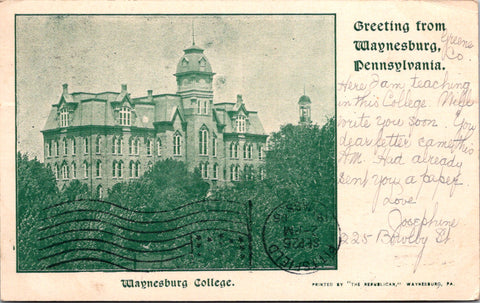 Greeting from
Waynesburg, Greene
Co.
Pennsylvania.
Here I am teaching
in this College. Will
write you soon. You
dear letter came this
A.M. Had already
sent you a paper
Love
Josephine
225 Bowlby St
Waynesburg College.
PRINTED BY "THE REPUBLICAN," WAYNESBURG, PA.